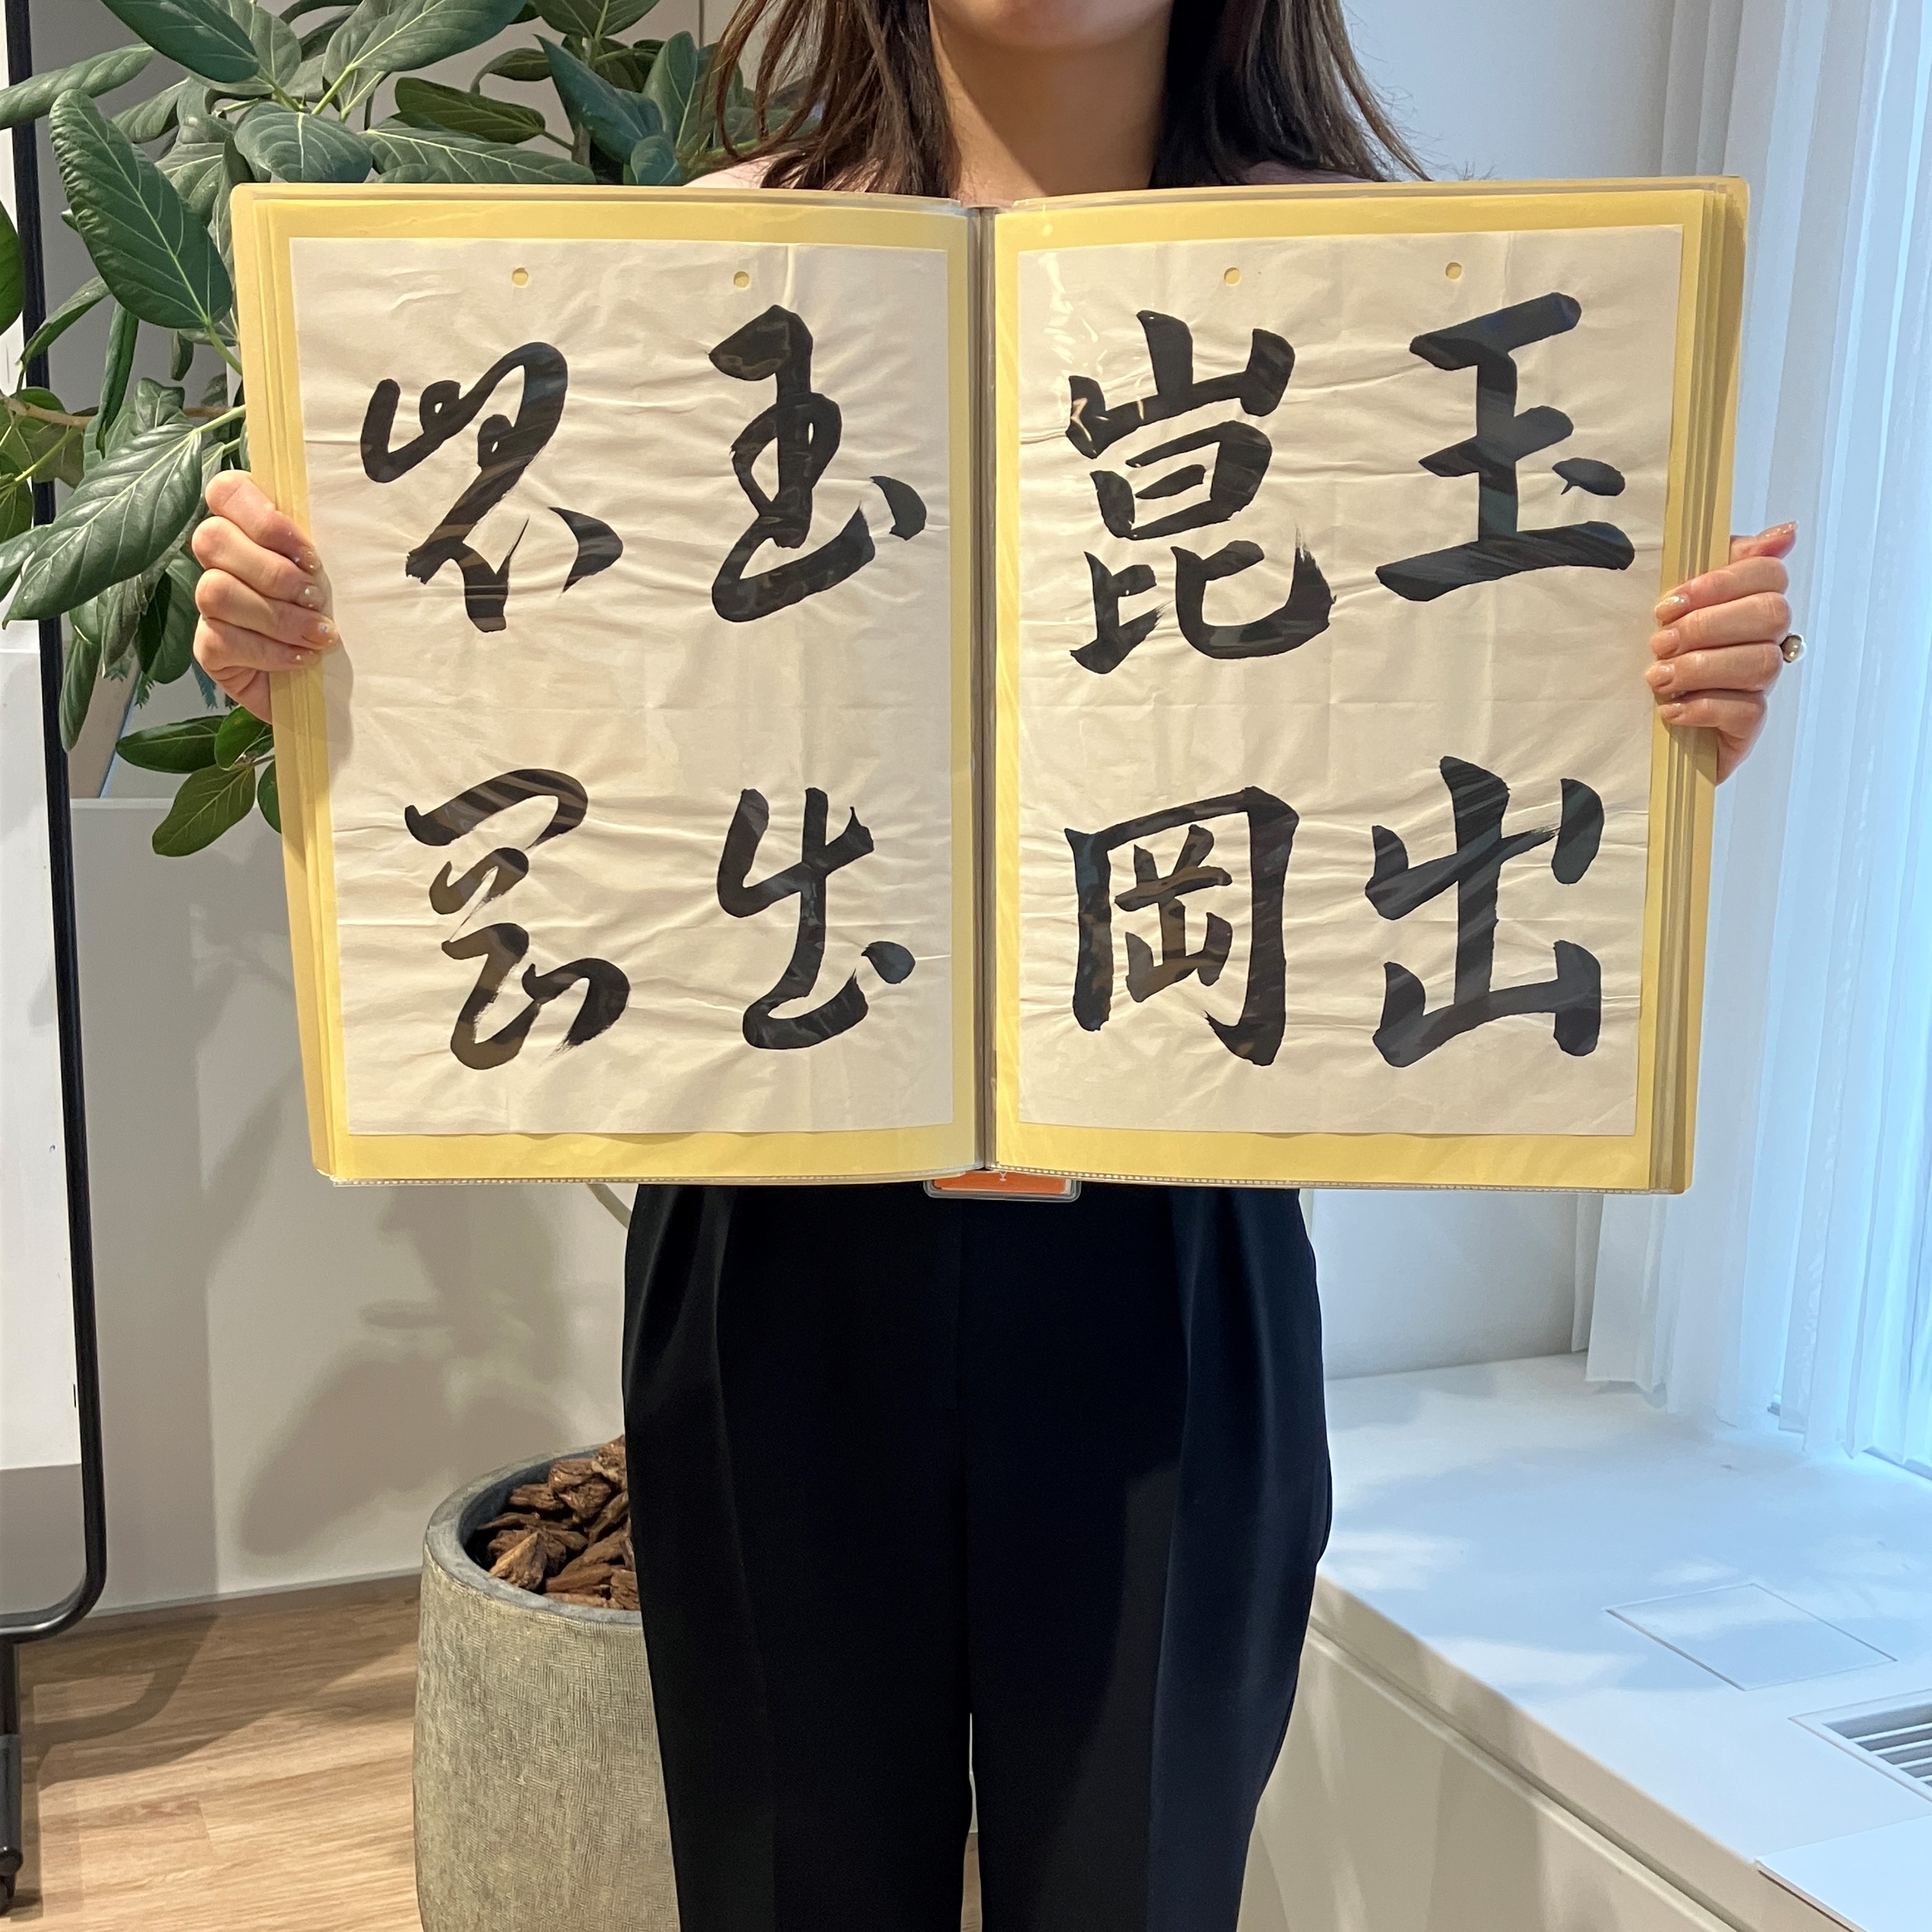 玉出
崑岡
玉出
崑岡